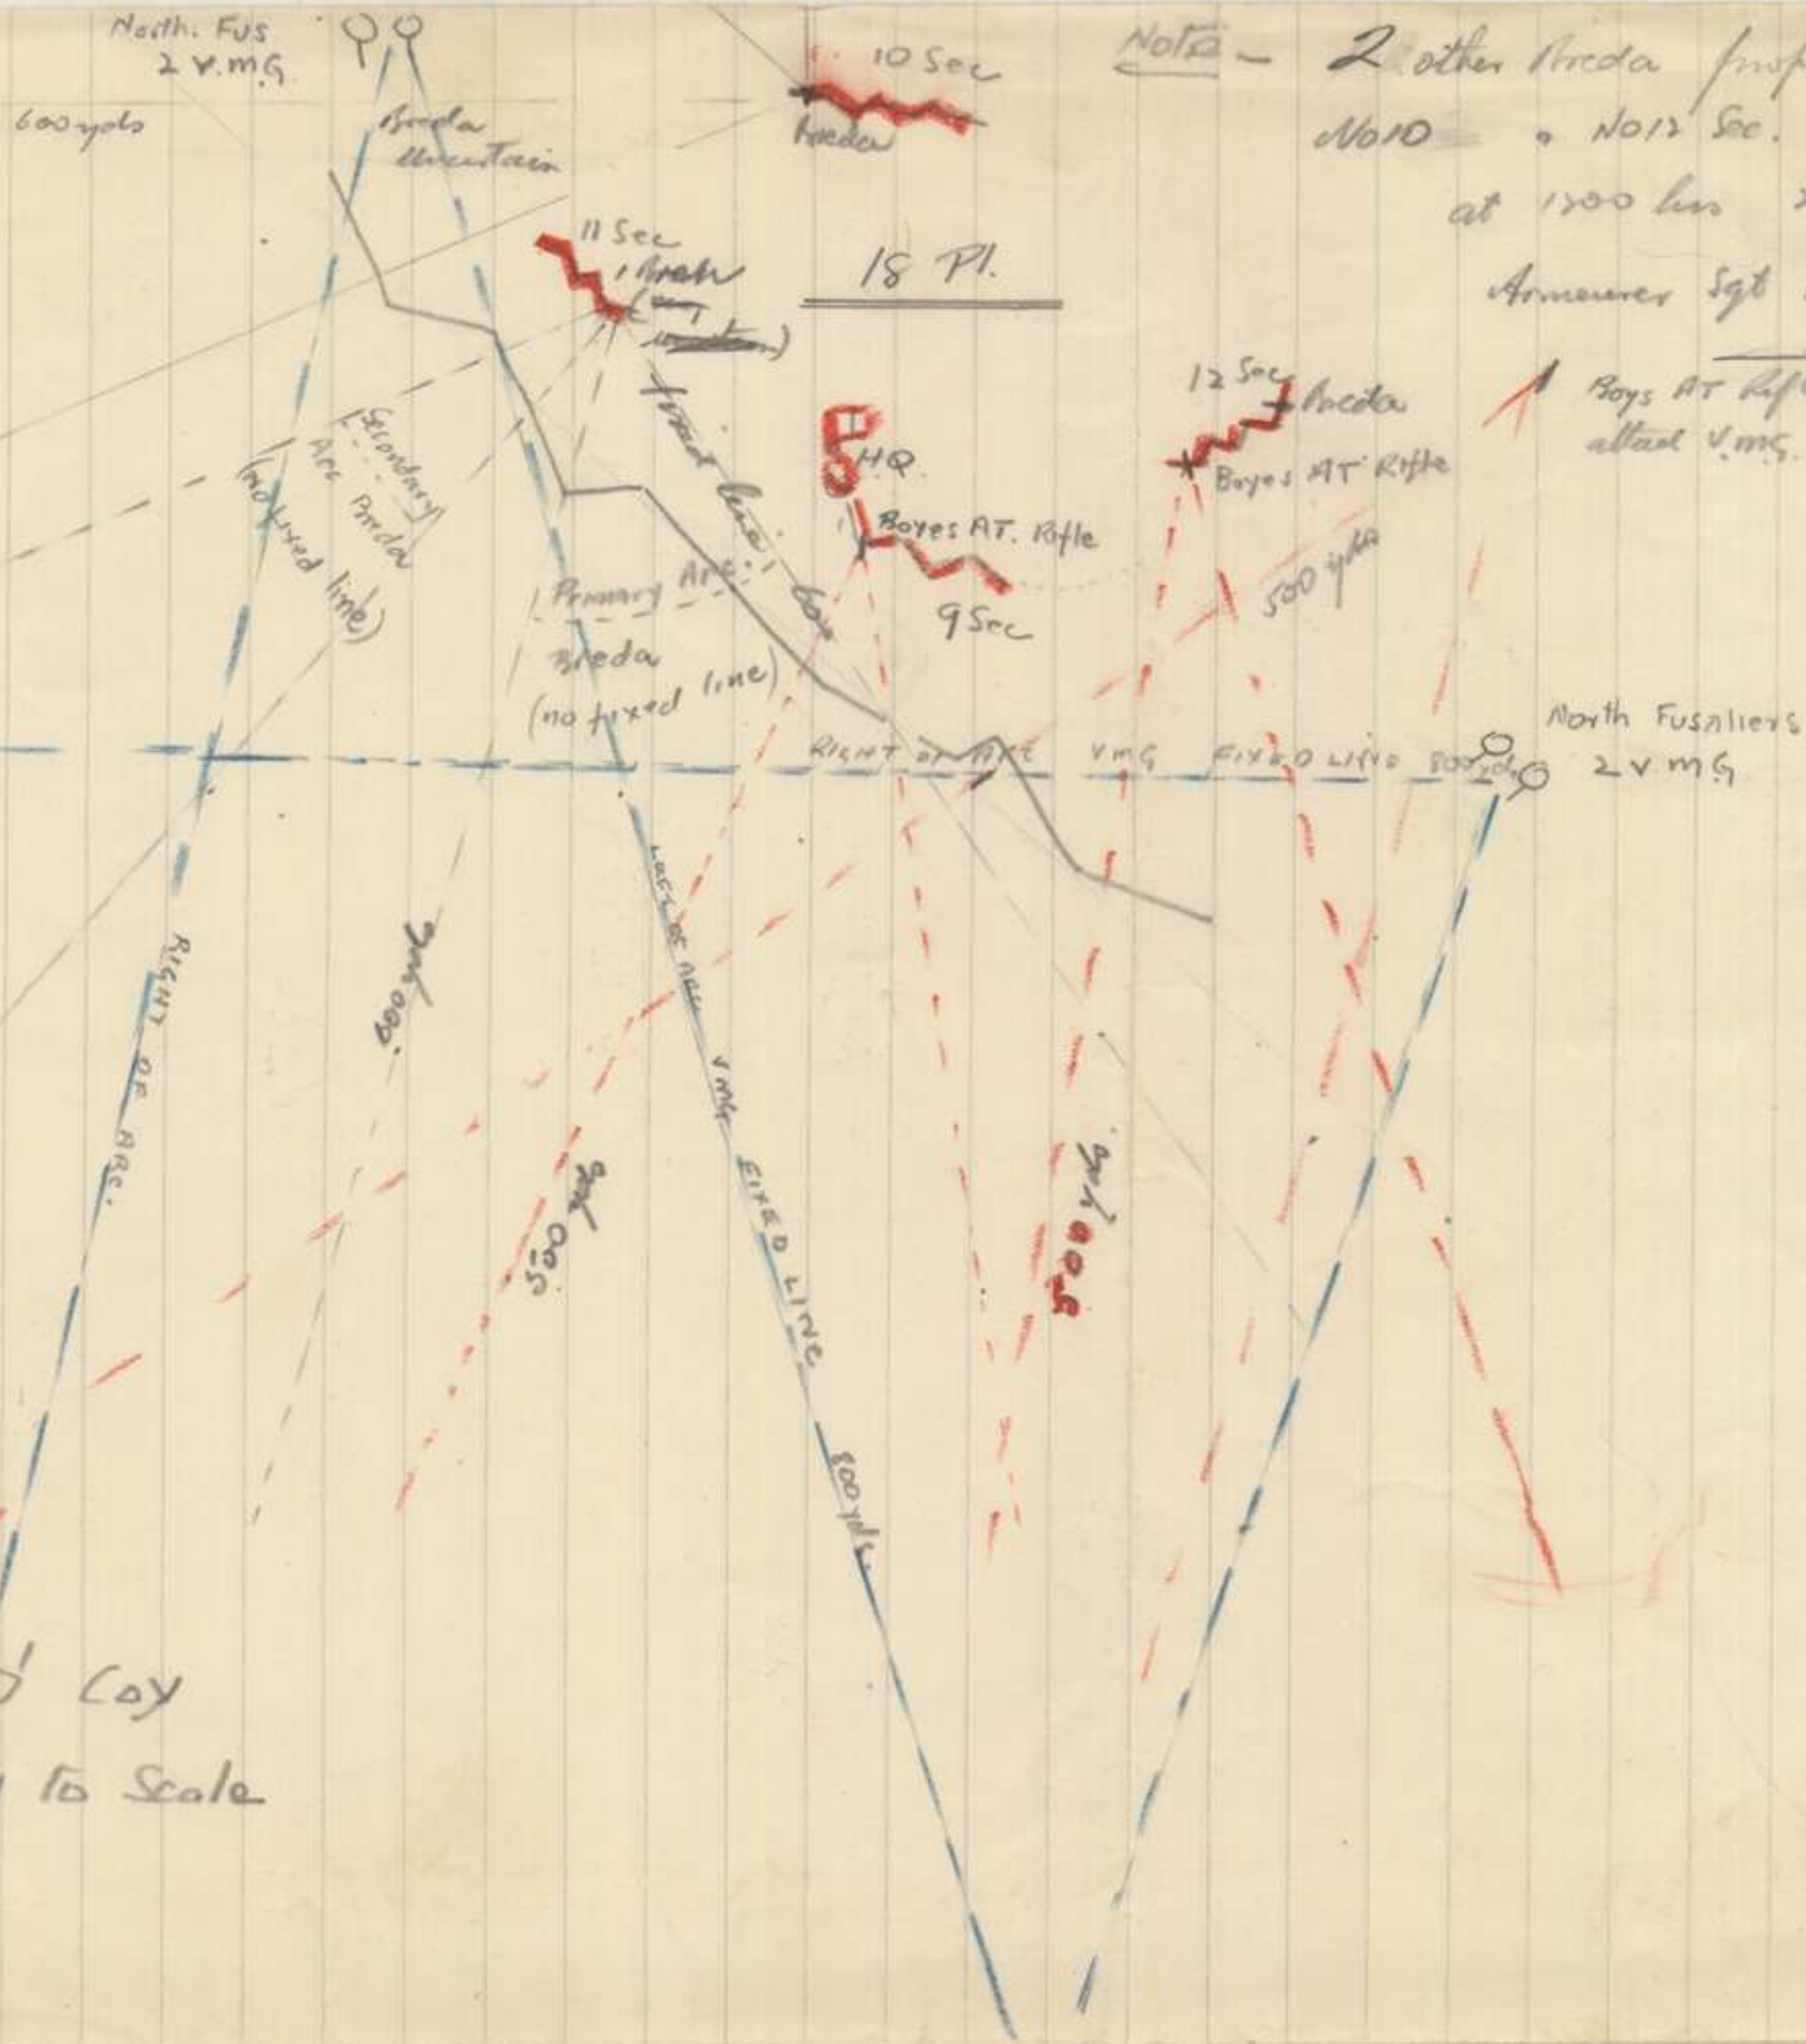 North. Fus
2 V.M.G.
600 yds
Breda
Uncertain
10 Sec
Breda
Note - 2 other Breda
No10 " No12 Sec.
at 1200 hrs
Armourer Sgt
11 Sec
18 Pl.
12 Sec
Breda
Boyes AT Rifle
Boys AT
attad V.M.G.
HQ.
Boyes AT. Rifle
9 Sec
500 yds
Secondary
Arc Breda
(no fixed line)
600
Primary Arc
Breda
(no fixed line)
North Fusaliers
2 V.M.G
RIGHT OF ARC VMG FIXED LINE 800 yds
RIGHT OF ARC.
600 yds
500 yds
LEFT OF ARC VMG FIXED LINE 800 yds.
500 yds
Coy
to Scale